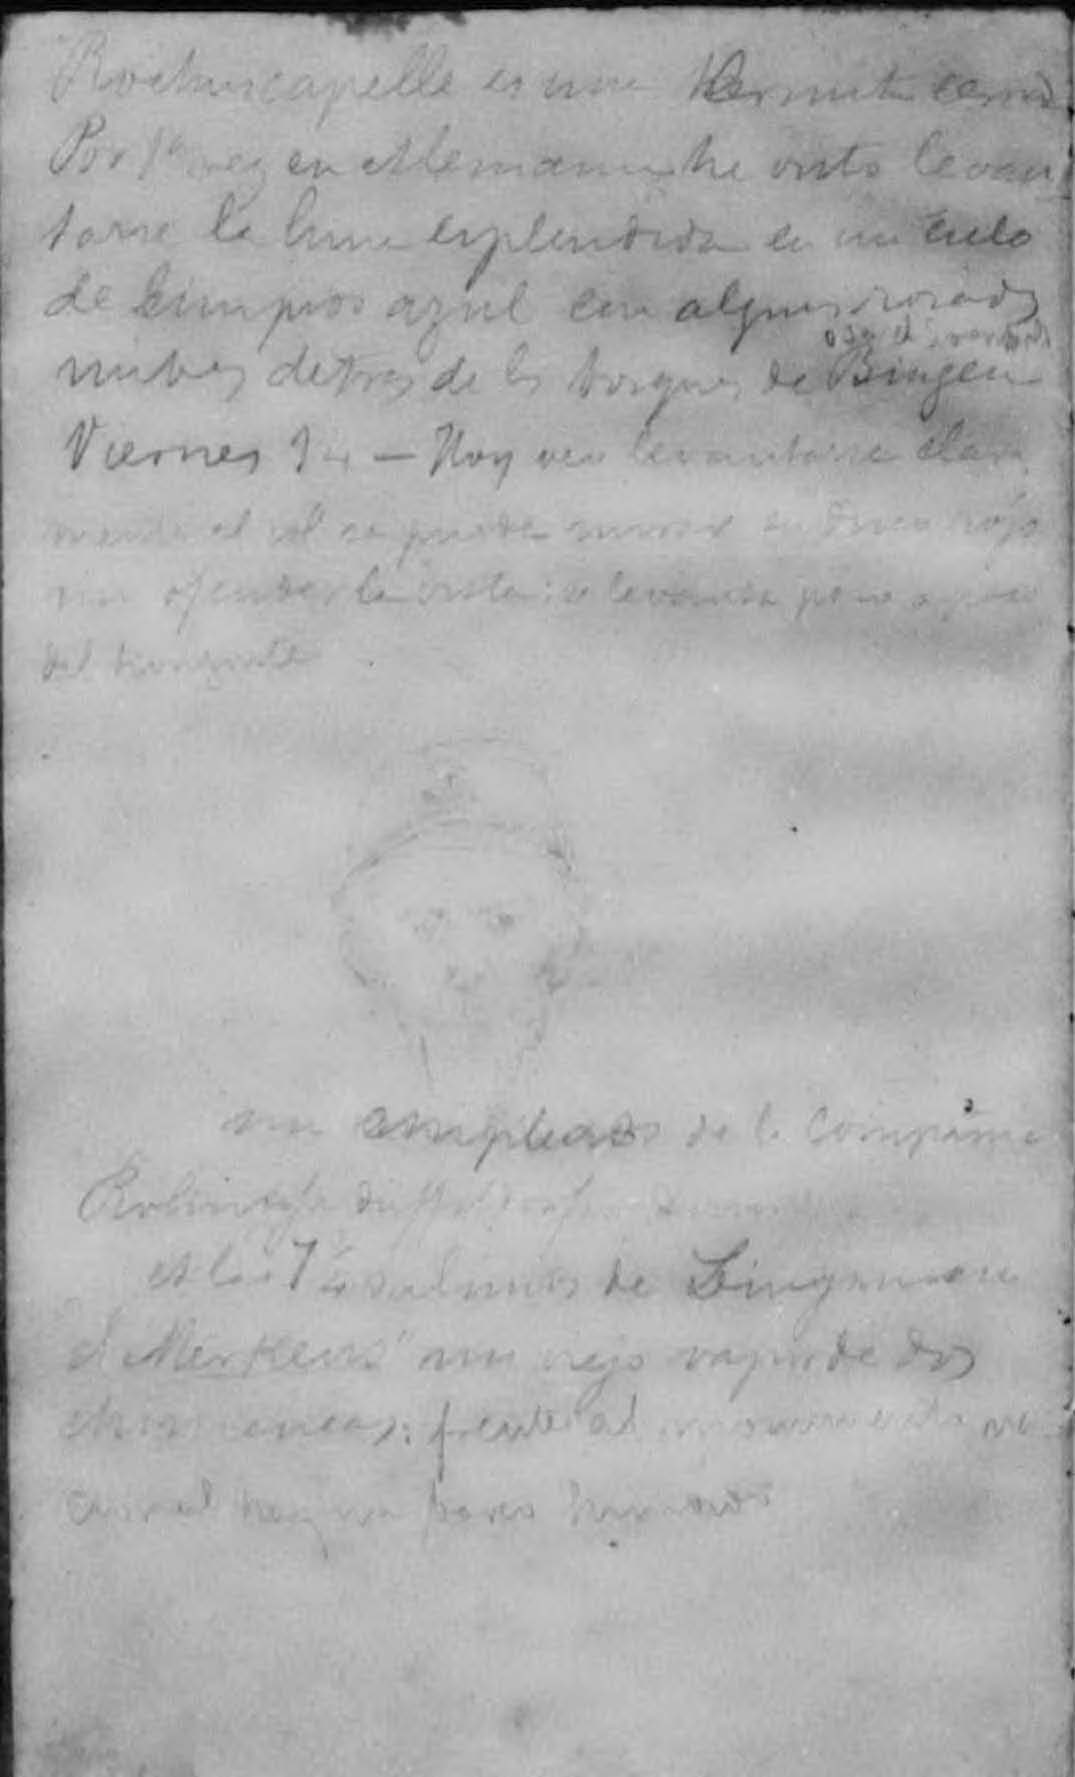 Rochuscapelle es una Hermita cerca
Por 1ª vez en Alemania he visto levan
tarse la luna esplendida en un cielo
de limpios azul con algunas rosadas
nubes detras de los bosques de Bingen
Viernes 14 — Hoy veo levantarse clara
mente el sol se puede mirar su disco rojo
sin ofender la vista: se levanta poco a poco
del horizonte
un empleado de la Compañia
A las 7 ¼ salimos de Bingen en
el "Merkens" un viejo vapor de dos
chimeneas: frente al monumento na
cional hay un